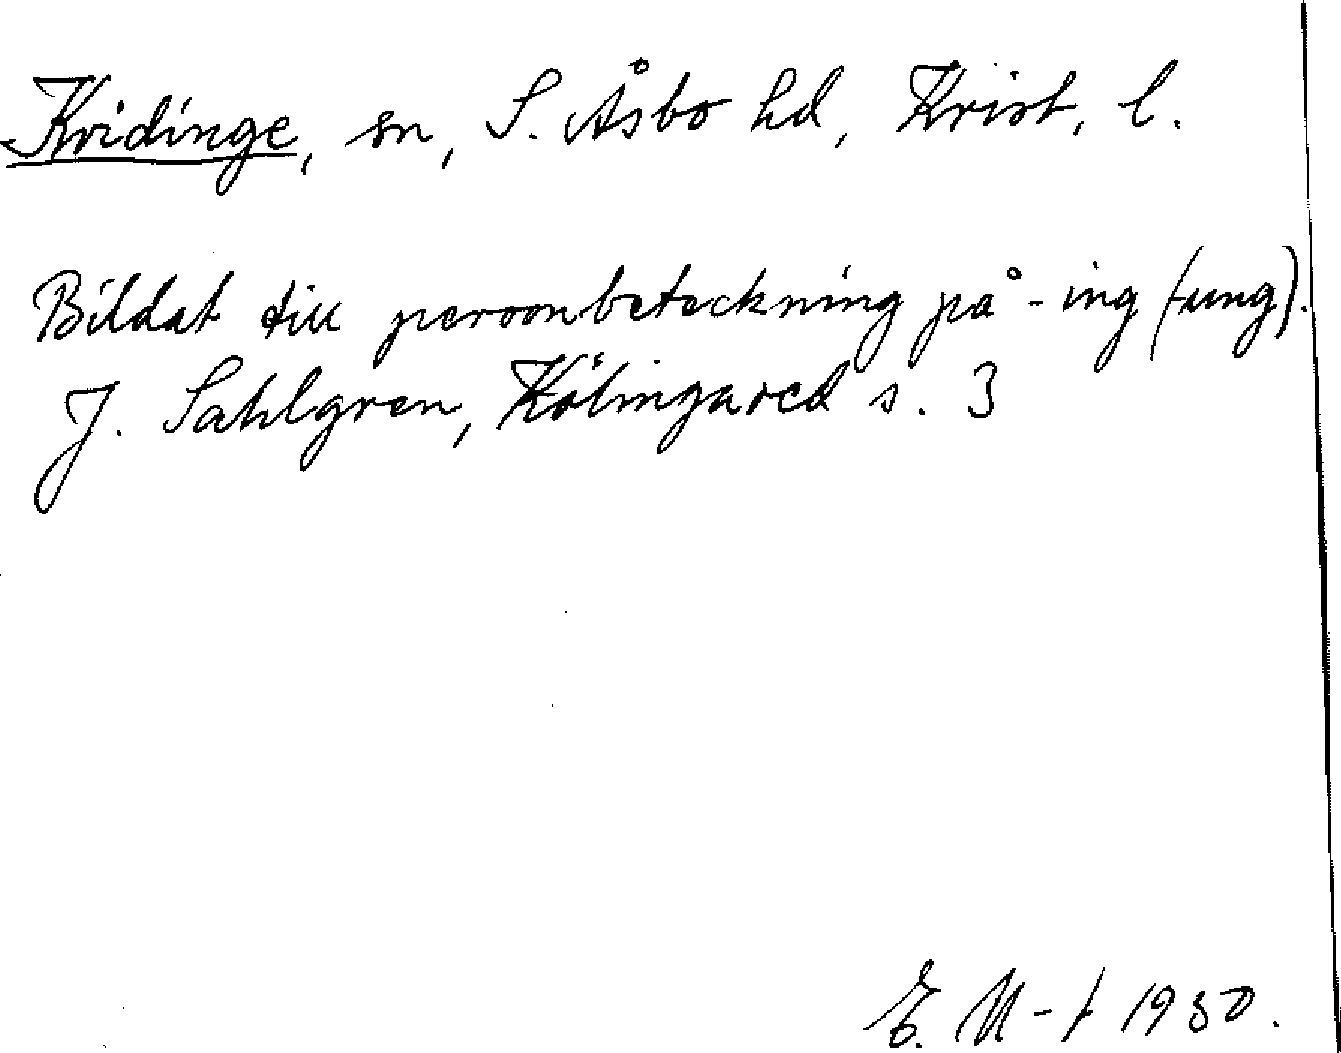 Kvidinge, sn, S. Åsbo hd, Krist. l.
Bildat till personbeteckning på -ing (-ung).
J. Sahlgren, Kölingared s. 3
E. M-t 1950.